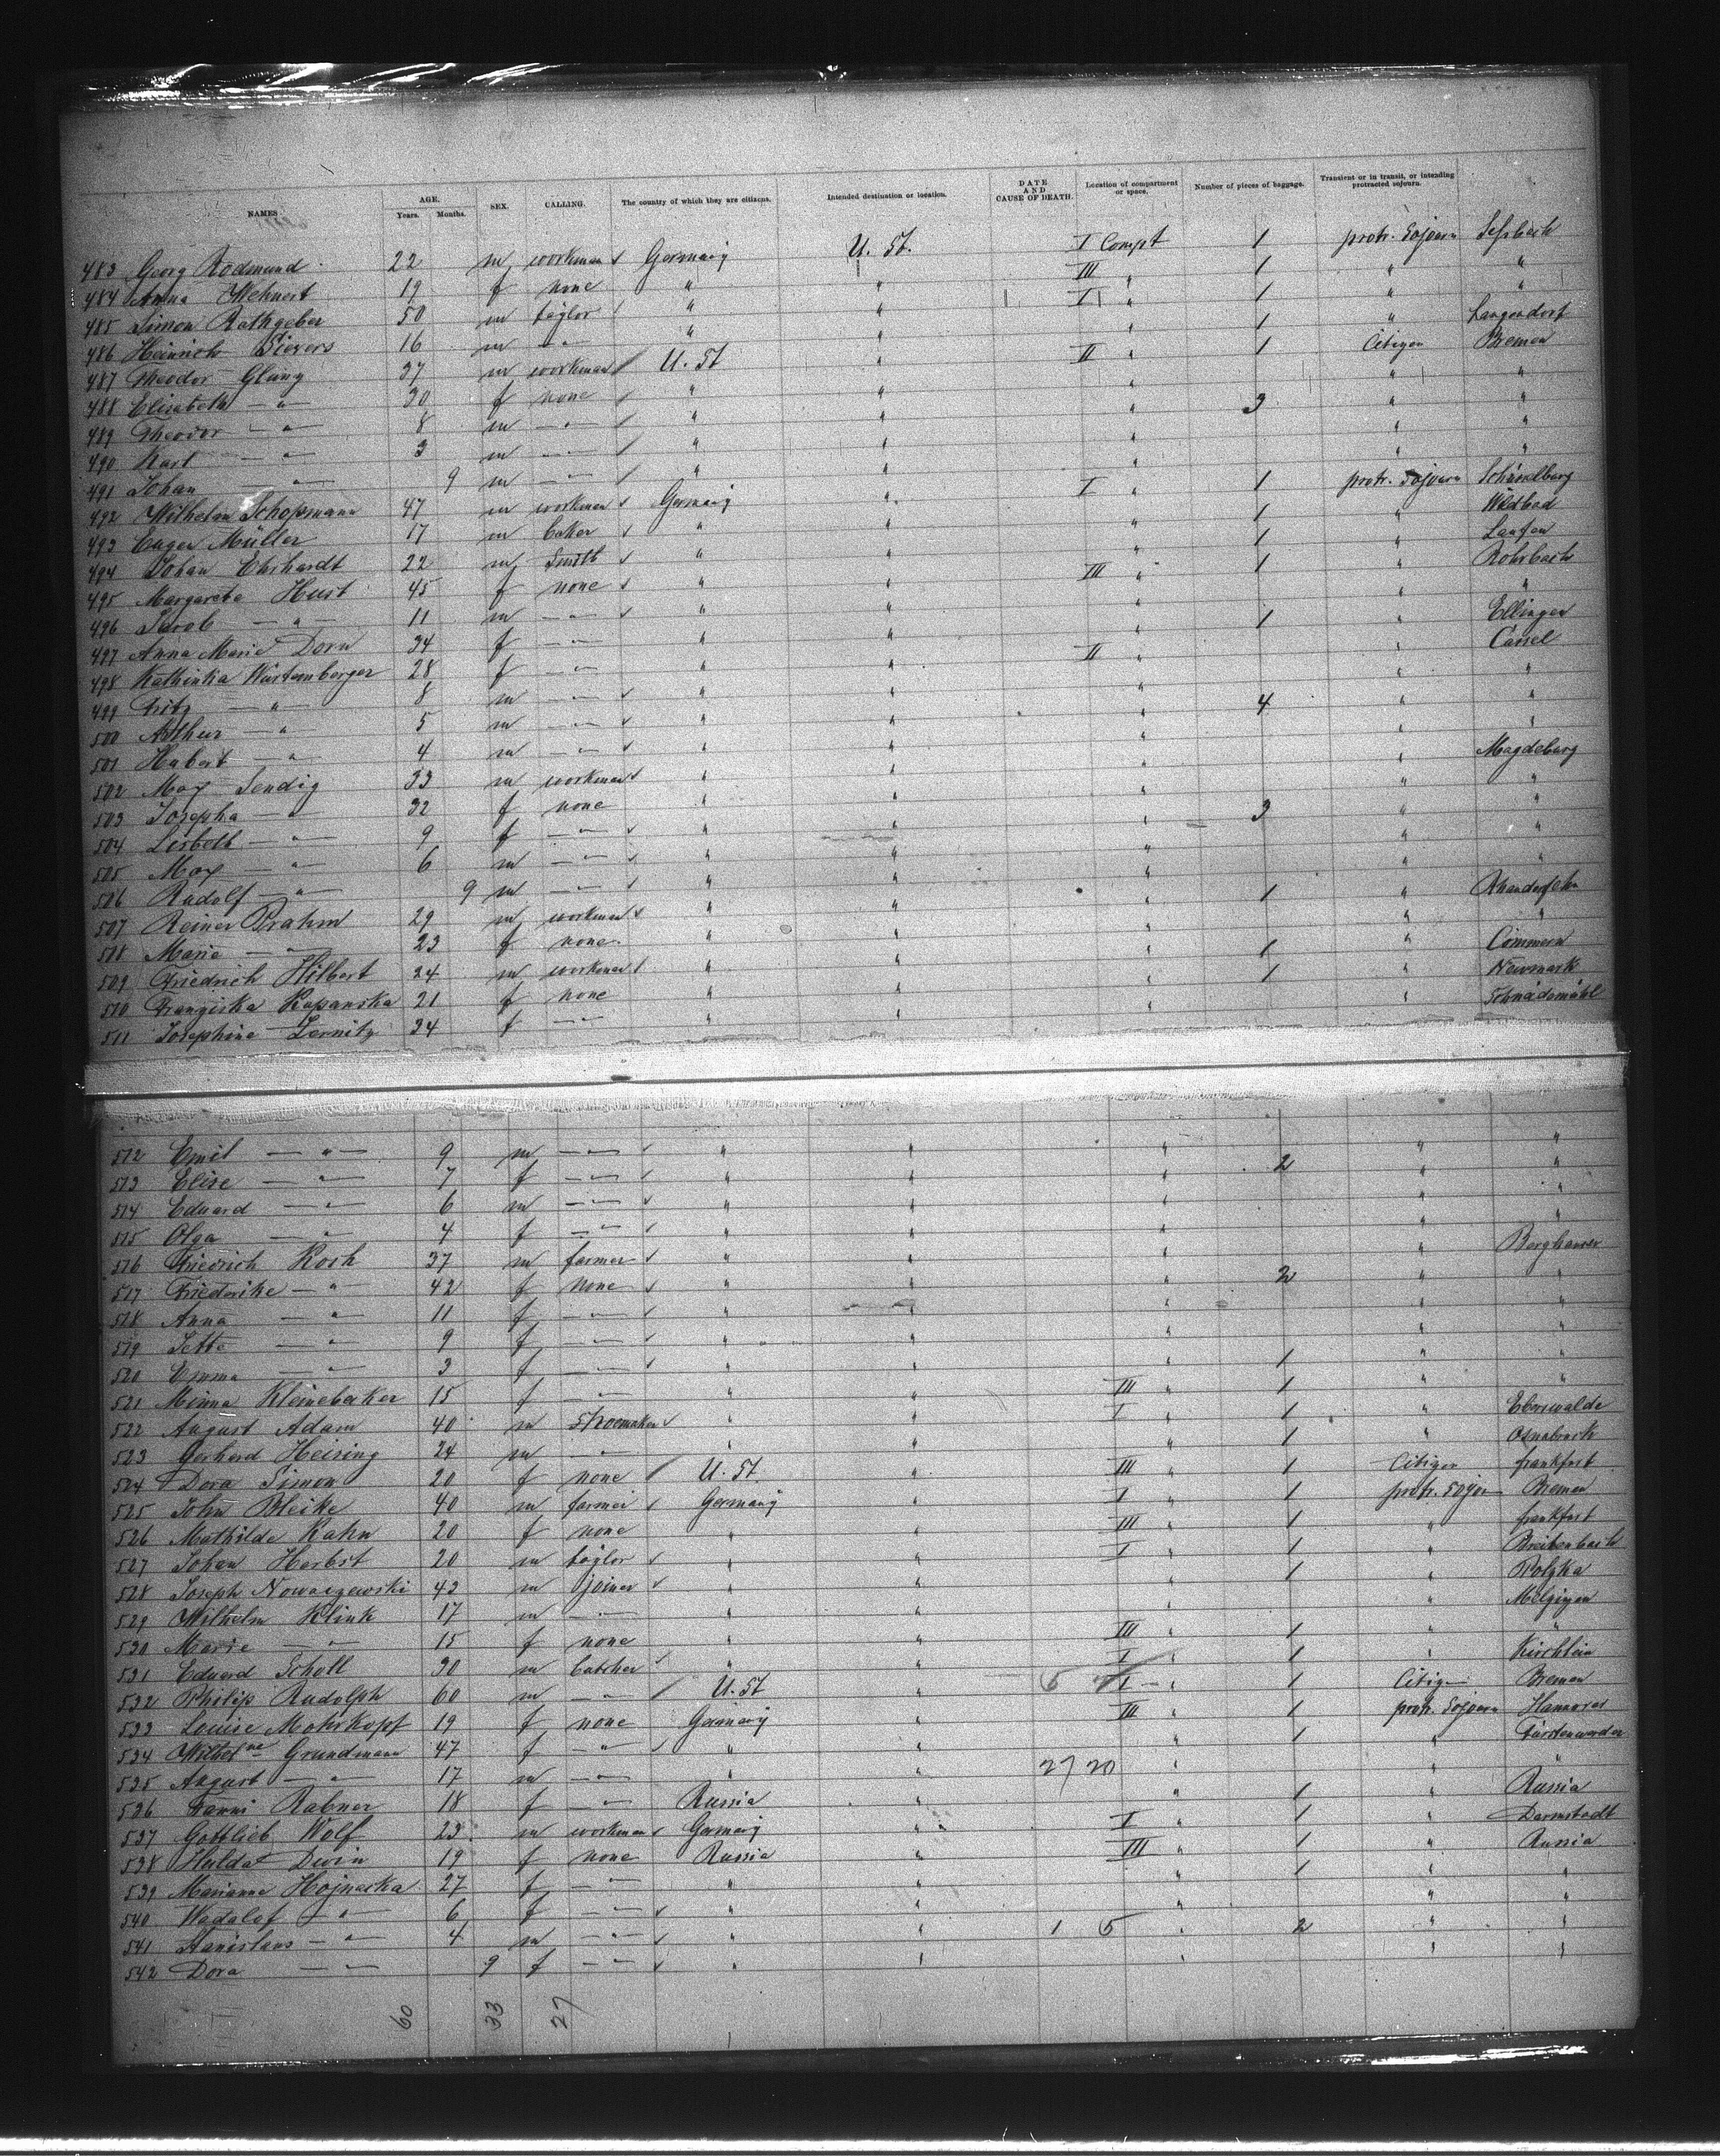 NAMES AGE. Years. Months. SEX. CALLING. The country of which they are citizens. Intended destination or location. DATE AND CAUSE OF DEATH. Location of compartment or space. Number of pieces of baggage. Transient or in transit, or intending protracted sojourn.
483 Georg Rodmund 22 m workman Germany U. St. I Compt 1 protr. Sojourn
484 Anna Wehnert 19 f none " " III " 1 " "
485 Simon Rathgeber 50 m taylor " " I " 1 " "
486 Heinrich Sievers 16 m — " — " " " 1 " Langendorf
487 Theodor Glung 37 m workman U. St " II " 1 Citizen Bremen
488 Elisabeth — " — 30 f none " " " " "
489 Theodor — " — 8 m — " — " " " 3 " "
490 Karl — " — 3 m — " — " " " " "
491 Johan — " — 9 m — " — " " " " "
492 Wilhelm Schopmann 47 m workman Germany " I " 1 protr. Sojourn
493 Eugen Müller 17 m baker " " " 1 " Wildbad
494 Johan Ehrhardt 22 m Smith " " " 1 " Laufen
495 Margareta Hust 45 f none " " III " 1 " Rohrbach
496 Jacob — " — 11 m — " — " " " " "
497 Anna Marie Dorn 34 f — " — " " " 1 " Ellingen
498 Kathinka Würtemberger 28 f — " — " " II " " Cassel
499 Fritz — " — 8 m — " — " " " " "
500 Arthur — " — 5 m — " — " " " 4 " "
501 Hubert — " — 4 m — " — " " " " "
502 Max Sendig 33 m workman " " " " Magdeburg
503 Josepha — " — 32 f none " " " " "
504 Lisbeth — " — 9 f — " — " " " 3 " "
505 Max — " — 6 m — " — " " " " "
506 Rudolf — " — 9 m — " — " " " " "
507 Reiner Prahm 29 m workman " " " 1 " Rhanderfehn
508 Marie — " — 23 f none " " " "
509 Friedrich Hilbert 24 m workman " " " 1 " Commern
510 Franziska Kapanska 21 f none " " " 1 " Neumark
511 Josephine Zernitz 34 f — " — " " " " Schneidemühl
512 Emil — " — 9 m — " — " " " " "
513 Elise — " — 7 f — " — " " " 2 " "
514 Eduard — " — 6 m — " — " " " " "
515 Olga — " — 4 f — " — " " " " "
516 Friedrich Koch 37 m farmer " " " " Berghausen
517 Friederike — " — 42 f none " " " 2 " "
518 Anna — " — 11 f — " — " " " " "
519 Jette — " — 9 f — " — " " " " "
520 Emma — " — 3 f — " — " " " 1 " "
521 Minna Kleinebecker 15 f — " — " " III " 1 " "
522 August Adam 40 m Shoemaker " " I " 1 " Eberswalde
523 Gerhard Heising 24 m — " — " " " 1 " Osnabrück
524 Dora Simon 20 f none U. St " III " 1 Citizen frankfurt
525 John Bleike 40 m farmer Germany " I " 1 protr. Sojour Bremen
526 Mathilde Kahn 20 f none " " III " 1 " frankfurt
527 Johan Herbst 20 m taylor " " I " 1 " Breitenbach
528 Joseph Nowaczewski 43 m joiner " " " 1 "
529 Wilhelm Klink 17 m — " — " " "
530 Marie — " — 15 f none " " III " 1 " "
531 Eduard Scholl 30 m butcher " " I " 1 "
532 Philip Rudolph 60 m — " — U. St " 5 I — " — 1 Citizen Bremen
533 Louise Mohrkopf 19 f none Germany " III " 1 protr. Sojourn Hannover
534 Wilhelne Grundmann 47 f — " — " " " 1 " Fürstenwerder
535 August — " — 17 m — " — " " 27 20 " " "
536 Fanni Rabner 18 f — " — Russia " " 1 " Russia
537 Gottlieb Wolf 23 m workman Germany " I " 1 " Darmstadt
538 Hulda 19 f none Russia " III " 1 " Russia
539 Marianne Hojnacka 27 f — " — " " " 1 " "
540 — " — 6 f — " — " " " " "
541 Stanislaus — " — 4 m — " — " " 1 5 " 2 " "
542 Dora — " — 9 f — " — " " " " "
60 33 27